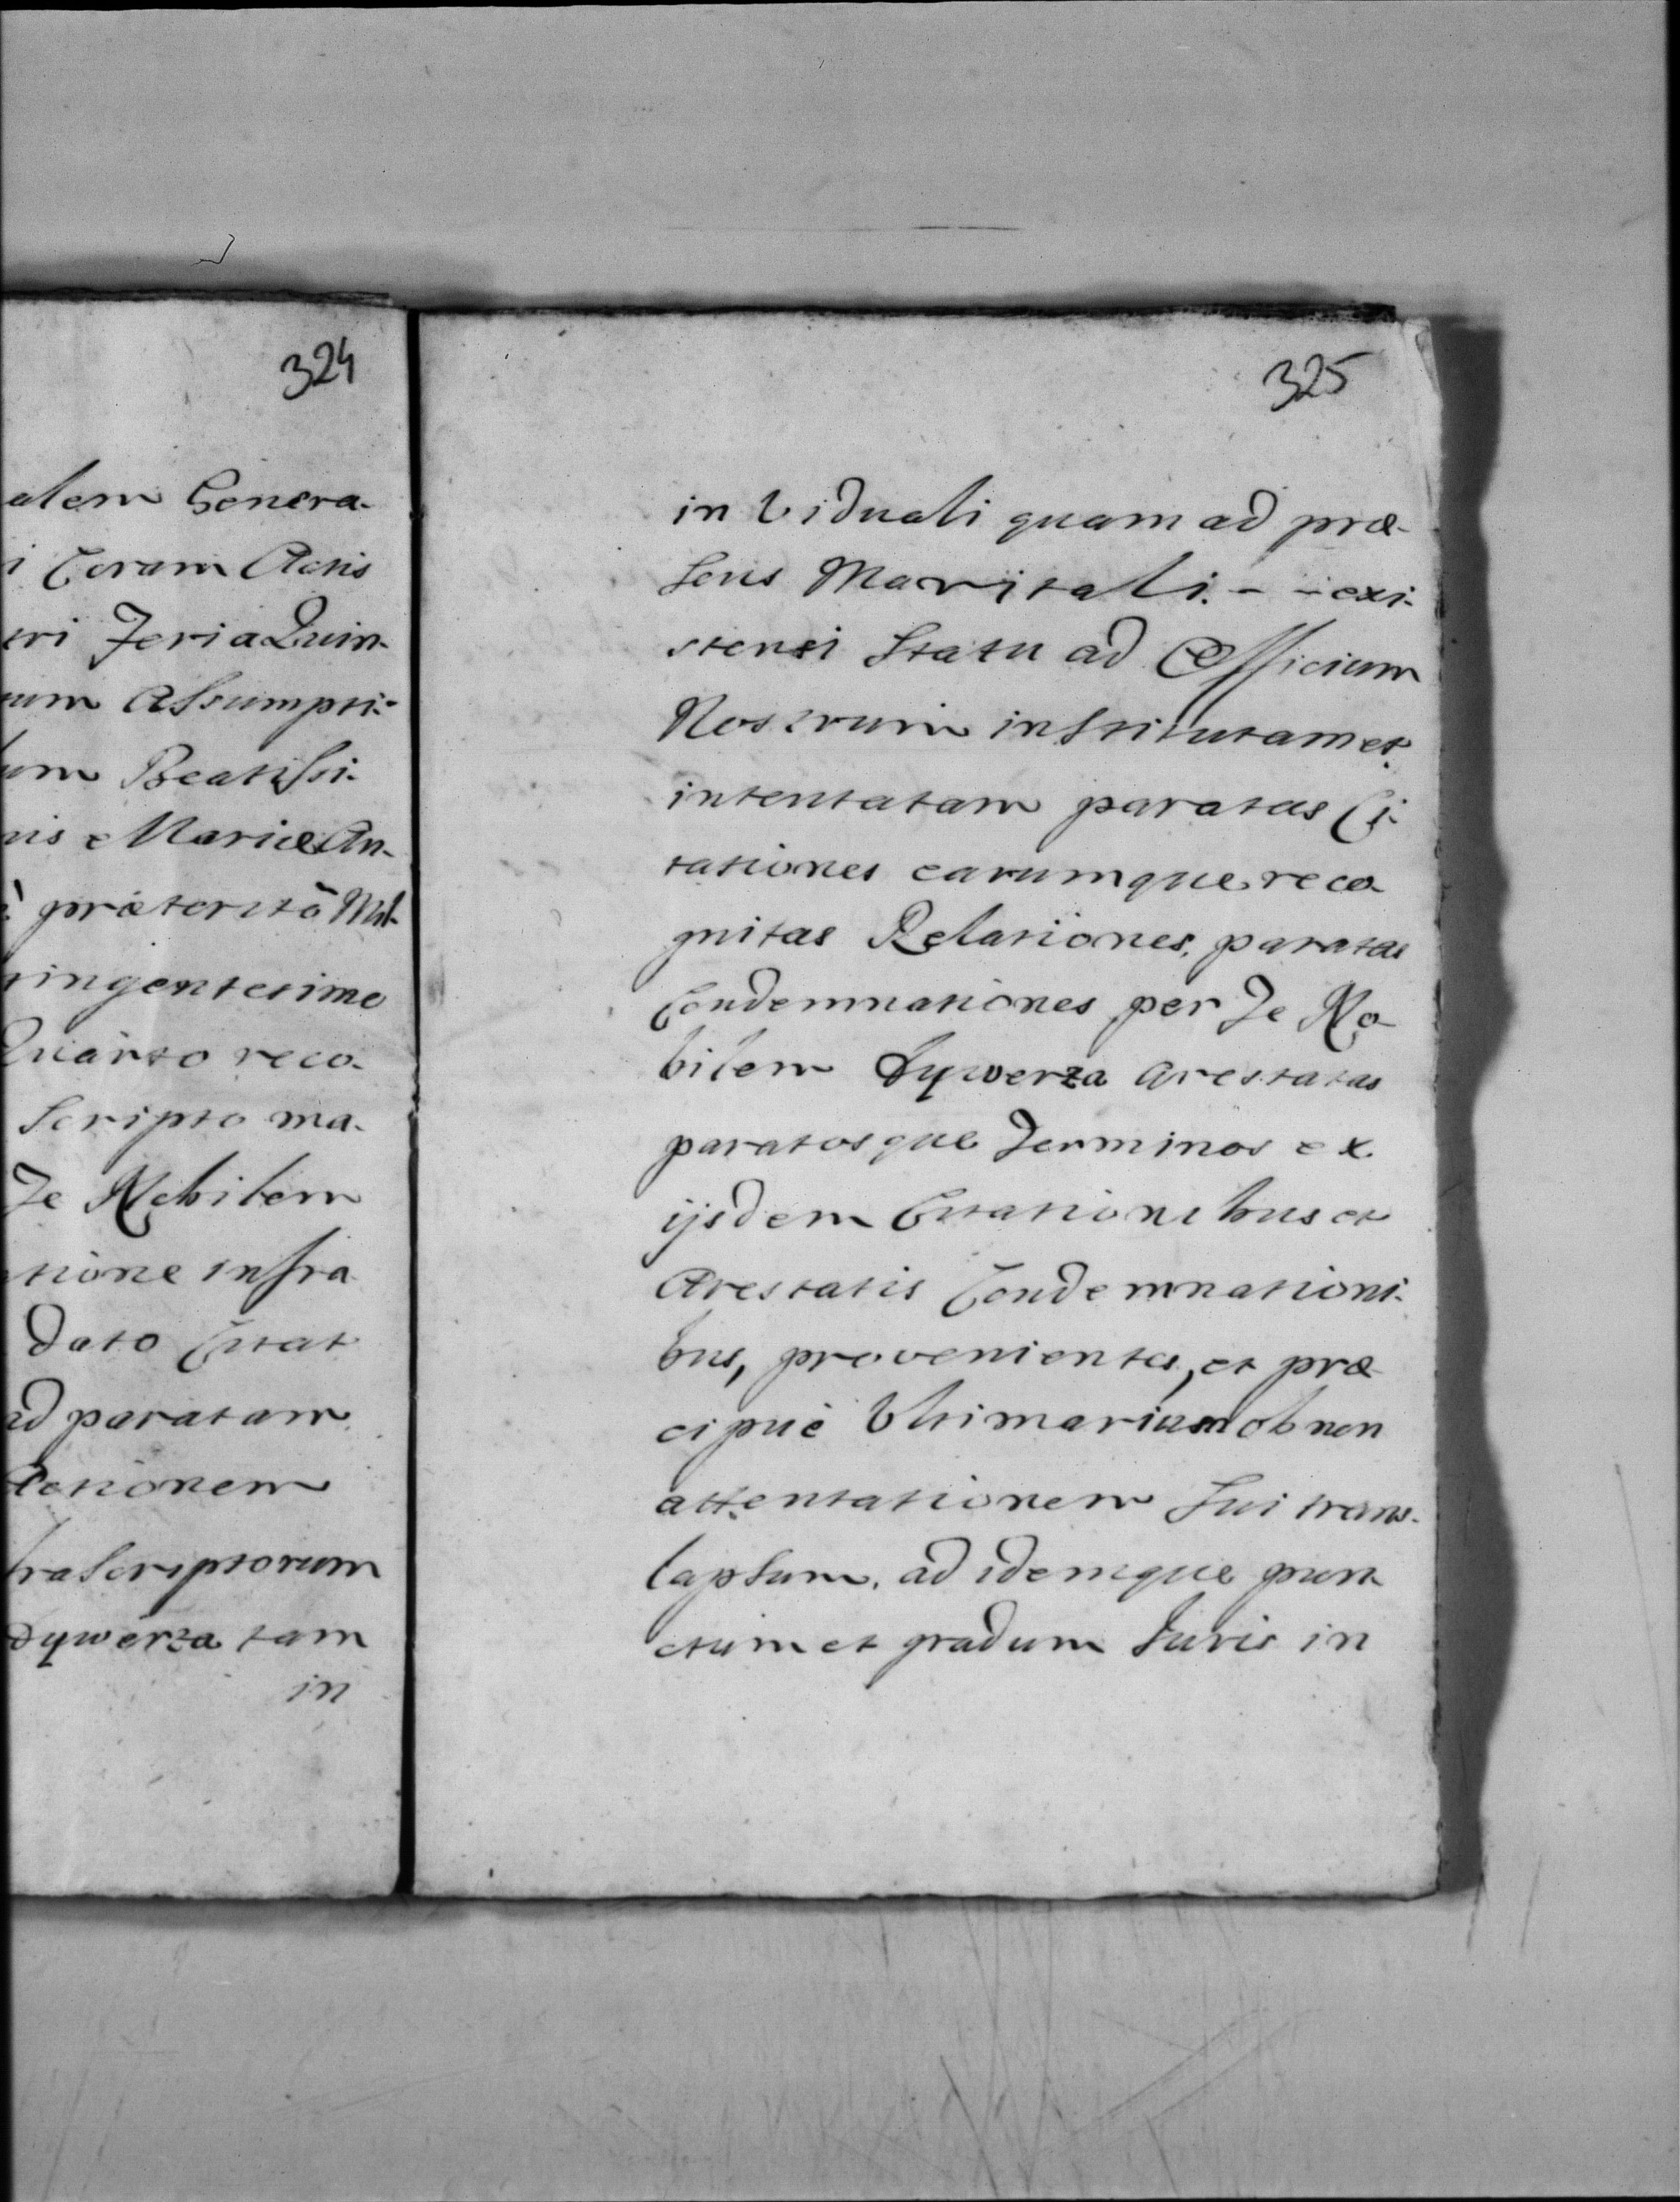 324
alem Genera-
i Coram Actis
tri Feria Quin-
um Assumpti-
um Beatissi-
nis Mariæ An-
præterito Mil-
ingentesimo
Quarto reco-
Scripto ma-
Te Nobilem
tione infra
dato Citat
ad paratam
Actionem
fra Scriptorum
Dywerza tam
in
325
in Viduali quam ad præ-
sens Maritali - - exi-
stensi Statu ad Officium
Nostrum institutam et
intentatam paratas Ci-
tationes earumque reco
gnitas Relationes, paratas
Condemnationes per Te No-
bilem Dywerza arestatas
paratosque Terminos ex
ijsdem Citationibus et
Arestatis Condemnationi-
bus, provenientes, et præ
cipuè Ultimarium ob non
attentationem Sui trans-
lapsum, ad idemque pun-
ctum et gradum Iuris in